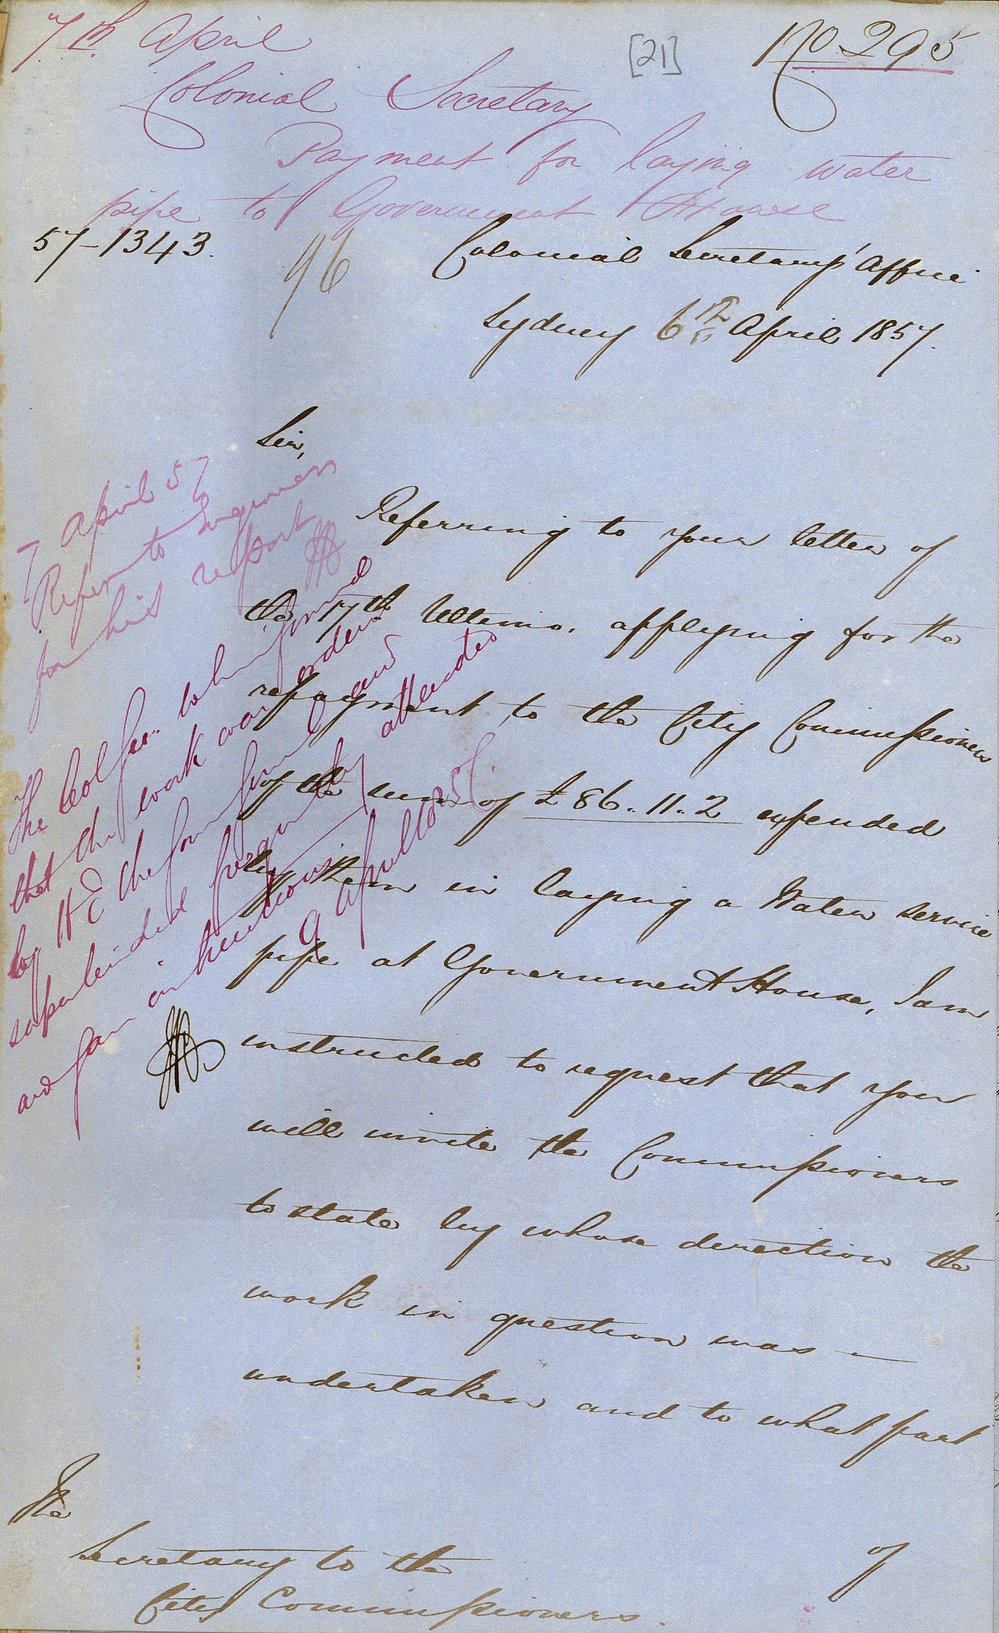 7th April
[21]
No 295
Colonial Secretary
Payment for laying water
pipe to Government House
57-1343.
96
Colonial Secretary's Office
Sydney 6th April 1857.
Sir,
Referring to your letter of
the 17th Ultimo, applying for the
repayment to the City Commissioners
of the sum of £86.11.2 expended
by them in laying a Water service
pipe at Government House, I am
instructed to request that you
will invite the Commissioners
to state by whose direction the
work in question was –
undertaken and to what part
of
The
Secretary to the
City Commissioners.
7 April 57
Refer to Engineers
for his report
The Col Sec. to be informed
that the work was ordered
by H E the Gov
superintended frequently attended
and gave instructions
9 April 1857.